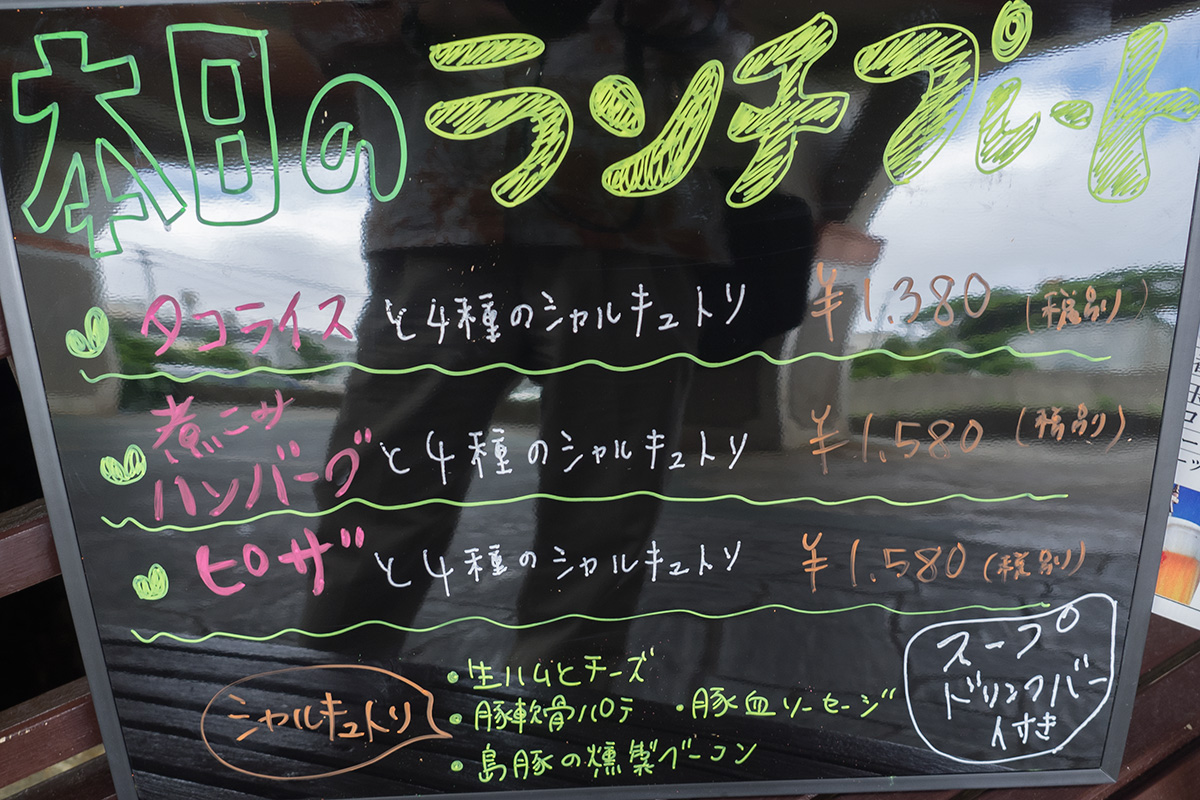 本日のランチプレート
タコライスと4種のシャルキュトリ ¥1.380(税別)
煮こみ
ハンバーグと4種のシャルキュトリ ¥1.580(税別)
ピザと4種のシャルキュトリ ¥1.580(税別)
シャルキュトリ
・生ハムとチーズ
・豚軟骨パテ ・豚血ソーセージ
・島豚の燻製ベーコン
スープ
ドリンクバー
付き